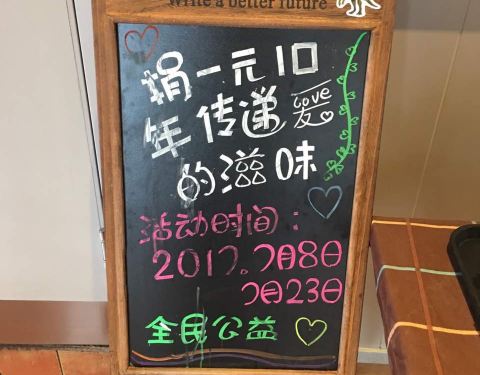 Write a better future
捐一元旧
年传递爱
Love
的滋味
活动时间:
2017.7月8日
7月23日
全民公益